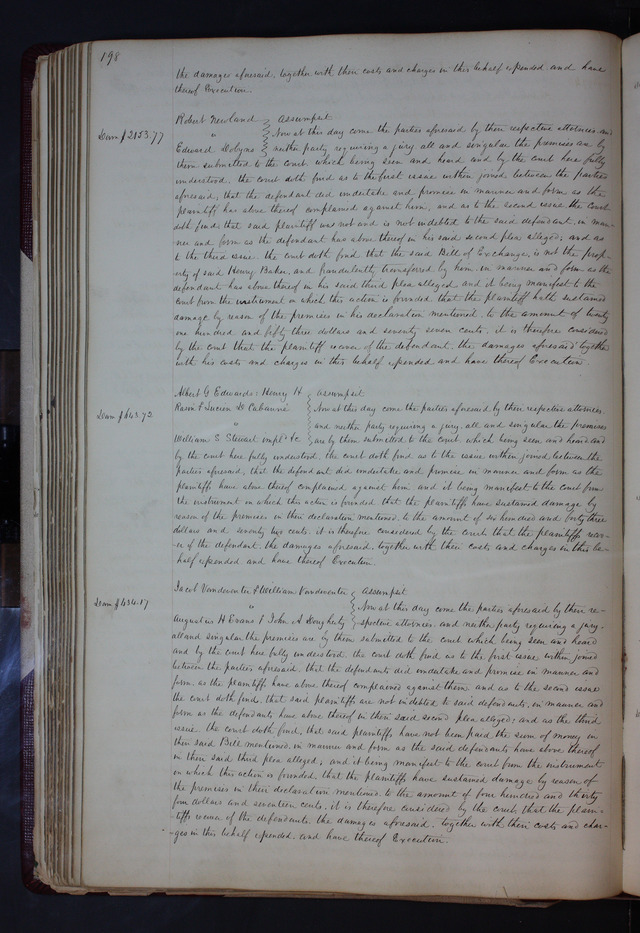 198
the damages aforesaid, together with their costs and charges in this behalf expended and have
thereof Execution.
Robert Newland } Assumpsit
Dam $2153.77 " } Now at this day come the parties aforesaid by their respective attornies and
Edward Dobyns } neither party requiring a jury all and singular the premises are by
them submitted to the court which being seen and heard and by the court here fully
understood, the court doth find as to the first issue within joined between the parties
aforesaid, that the defendant did undertake and promise in manner and form as the
plaintiff has above thereof complained against him, and as to the second issue the court
doth find that said plaintiff was not and is not indebted to the said defendant, in man-
ner and form as the defendant has above thereof in his said second plea alleged; and as
to the third issue the court doth find that the said Bill of Exchange, is not the prop-
erty of said Henry Baker, and fraudulently transferred by him in manner and form as the
defendant has above thereof in his said third plea alleged and it being manifest to the
court from the instrument on which this action is founded, that the plaintiff hath sustained
damage by reason of the premises in his declaration mentioned to the amount of twenty
one hundred and fifty three dollars and seventy seven cents, it is therefore considered
by the court that the plaintiff recover of the defendant, the damages aforesaid together
with his costs and charges in this behalf expended and have thereof Execution.
Albert G Edwards, Henry H } Assumpsit
Dam $643.72 & Lucien D Cabanné } Now at this day come the parties aforesaid by their respective attornies,
" } and neither party requiring a jury, all and singular the premises
William S Stewart impl'd &c. } are by them submitted to the court which being seen and heard and
by the court here fully understood, the court doth find as to the issue within joined between the
parties aforesaid, that the defendant did undertake and promise in manner and form as the
plaintiffs have above thereof complained against him and it being manifest to the court from
the instrument on which this action is founded that the plaintiffs have sustained damage by
reason of the premises in their declaration mentioned to the amount of six hundred and forty three
dollars and seventy two cents, it is therefore considered by the court that the plaintiffs recov-
er of the defendant, the damages aforesaid, together with their costs and charges in this be-
half expended and have thereof Execution.
Jacob Vandeventer & William Vandeventer } Assumpsit
Dam $434.17 " } Now at this day come the parties aforesaid by their re-
Augustus H Evans & John A Dougherty } spective attornies and neither party requiring a jury.
all and singular the premises are by them submitted to the court which being seen and heard
and by the court here fully understood, the court doth find as to the first issue within joined
between the parties aforesaid, that the defendants did undertake and promise in manner and
form, as the plaintiffs have above thereof complained against them and as to the second issue
the court doth find, that said plaintiffs are not indebted to said defendants, in manner and
form as the defendants have above thereof in their said second plea alleged; and as the third
issue the court doth find, that said plaintiffs have not been paid the sum of money in
their said Bill mentioned, in manner and form as the said defendants have above thereof
in their said third plea alleged; and it being manifest to the court from the instrument
on which this action is founded, that the plaintiffs have sustained damage by reason of
the premises in their declaration mentioned, to the amount of four hundred and thirty
four dollars and seventeen cents, it is therefore considered by the court, that the plain-
tiffs recover of the defendants, the damages aforesaid, together with their costs and char-
ges in this behalf expended, and have thereof Execution.